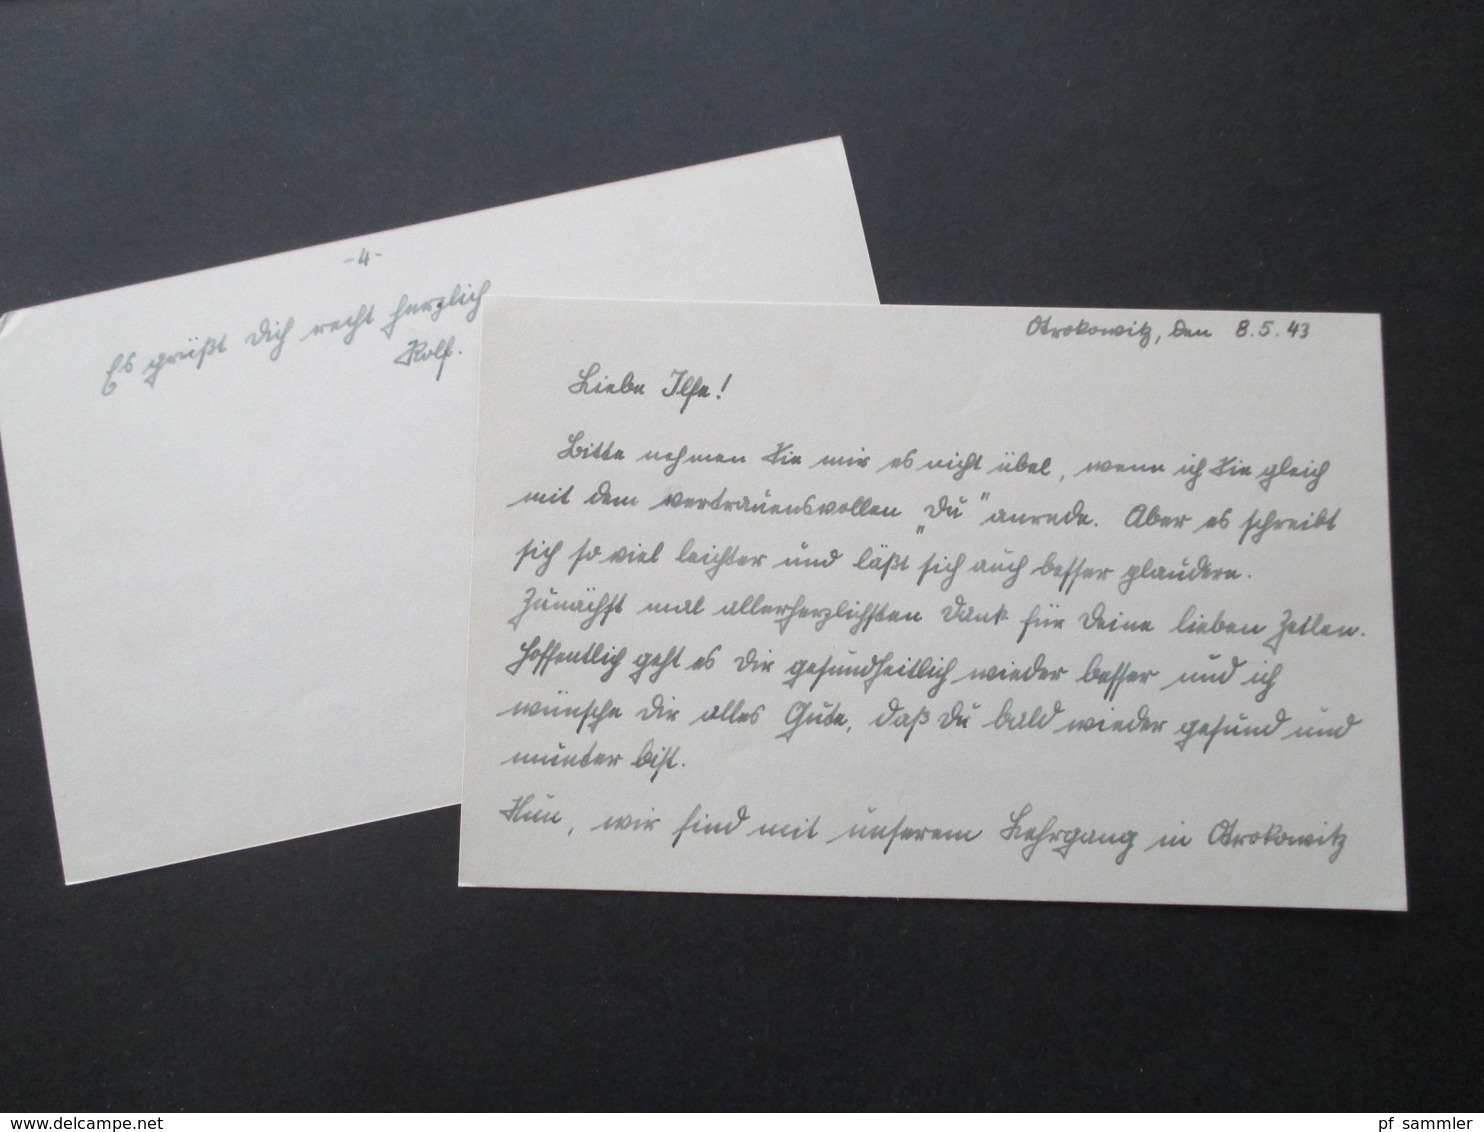 -4-
Es grüßt Dich recht herzlich
Rolf.
Otrokowitz, den 8.5.43
Liebe Ilse!
Bitte nehmen Sie mir es nicht übel, wenn ich Sie gleich
mit dem vertrauensvollen „Du" anrede. Aber es schreibt
sich so viel leichter und läßt sich auch besser plaudern.
Zunächst mal allerherzlichsten Dank für Deine lieben Zeilen.
Hoffentlich geht es Dir gesundheitlich wieder besser und ich
wünsche Dir alles Gute, daß Du bald wieder gesund und
munter bist.
Nun, wir sind mit unserem Lehrgang in Otrokowitz
delcampe.net
pf_sammler